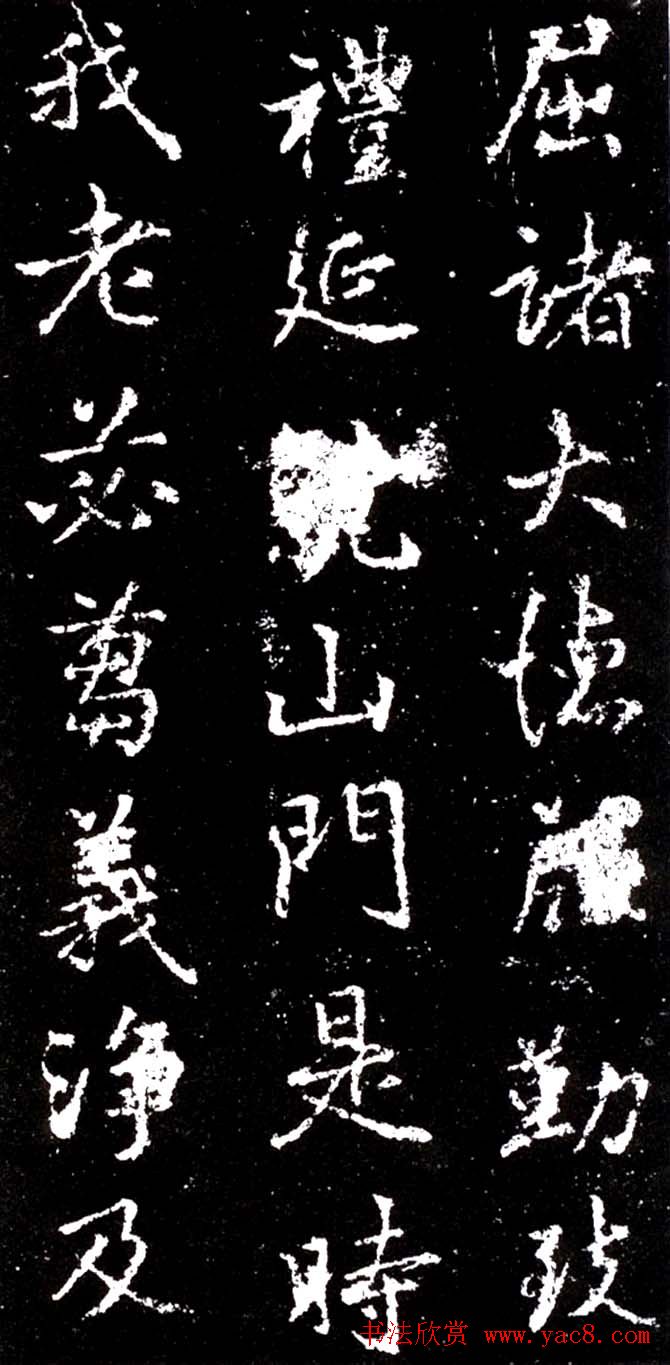 屈諸大德勤致
禮延山門是時
我老苾蒭義淨及
书法欣赏 www.yac8.com